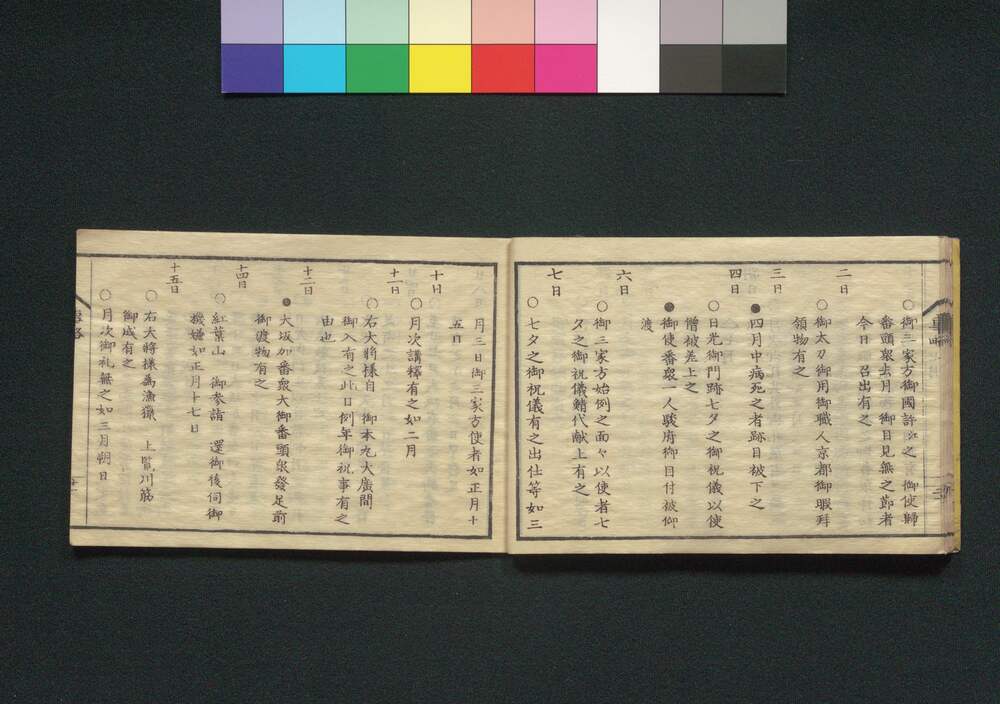 ○御三家方御國許
番頭衆去月 御目見無之節者
今日 召出有之
二日
○御太刀御用御職人京都御暇拜
領物有之
三日
●四月中病死之者跡目被下之
四日
○日光御門跡七夕之御祝儀以使
僧被差上之
●御使番衆一人駿府御目付被仰
渡
六日
○御三家方始例之面々以使者七
夕之御祝儀鯖代献上有之
七日
○七夕之御祝儀有之出仕等如三
月三日御三家方使者如正月十
五日
十日
○月次講釋有之如二月
十一日
○右大將様自 御本丸大廣間
御入有之此日例年御祝事有之
由也
十二日
●大坂加番衆大御番頭衆發足前
御渡物有之
十四日
○紅葉山 御参詣 還御後伺御
機嫌如正月十七日
十五日
○右大將様為漁獵 上覧川筋
御成有之
○月次御礼無之如三月朔日